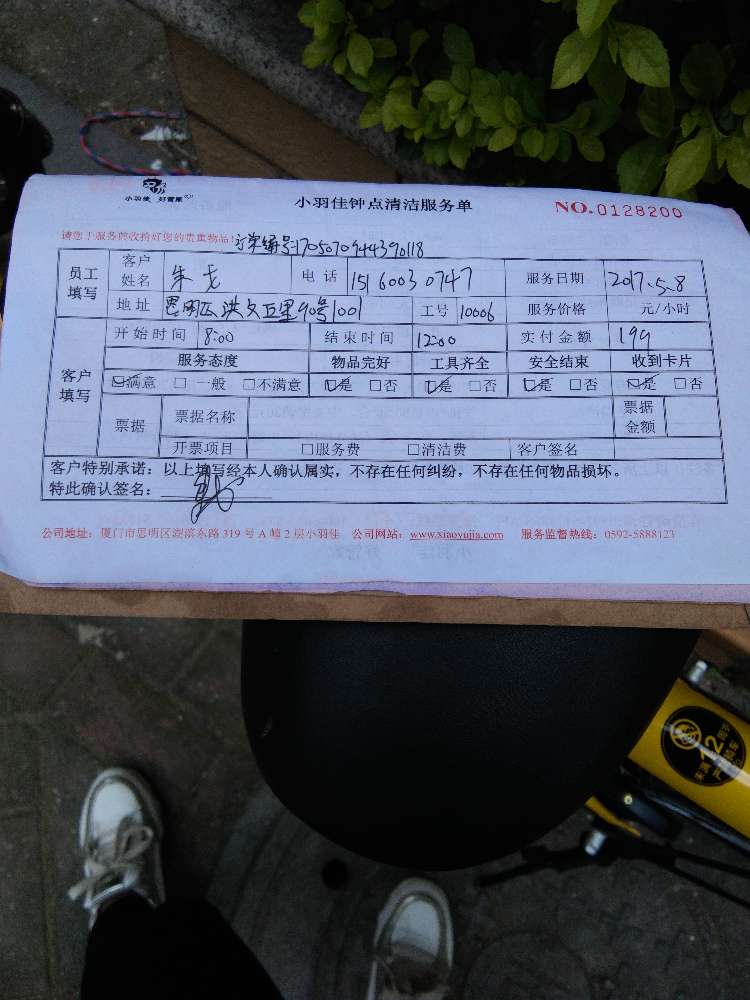 小羽佳 好管家
小羽佳钟点清洁服务单
NO.0128200
请您于服务前收拾好您的贵重物品!
订单编号:1705070944390118
员工填写 客户姓名 朱戈 电话 15160030747 服务日期 2017.5.8
地址 思明区洪文五里90号1001 工号 10006 服务价格 元/小时
客户填写 开始时间 8:00 结束时间 12:00 实付金额 199
服务态度 物品完好 工具齐全 安全结束 收到卡片
☑满意 □一般 □不满意 ☑是 □否 ☑是 □否 ☑是 □否 ☑是 □否
票据 票据名称 票据金额
开票项目 □服务费 □清洁费 客户签名
客户特别承诺:以上填写经本人确认属实,不存在任何纠纷,不存在任何物品损坏。
特此确认签名:
公司地址:厦门市思明区湖滨东路319号A幢2层小羽佳 公司网站:www.xiaoyujia.com 服务监督热线:0592-5888123
12